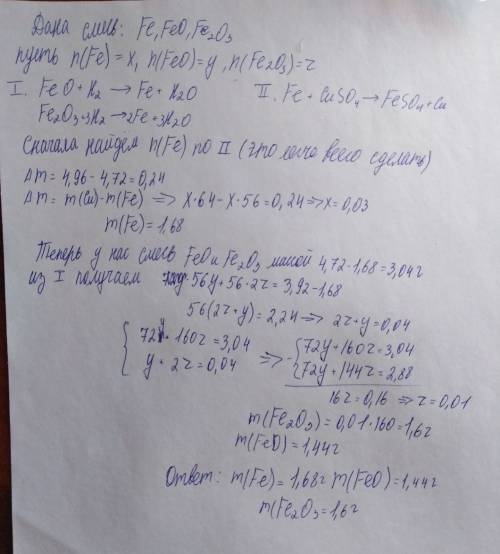 Дана смесь: Fe, FeO, Fe₂O₃
пусть n(Fe)=x, n(FeO)=y, n(Fe₂O₃)=z
I. FeO + H₂ → Fe + H₂O
II. Fe + CuSO₄ → FeSO₄ + Cu
Fe₂O₃+3H₂ → 2Fe+3H₂O
Сначала найдем n(Fe) по II (это легче всего сделать)
Δm = 4,96 - 4,72 = 0,24
Δm = m(Cu)-m(Fe) => x·64 - x·56 = 0,24 => x = 0,03
m(Fe) = 1,68
Теперь у нас смесь FeO и Fe₂O₃ массой 4,72-1,68 = 3,04г
из I получаем 56y + 56·2z = 3,92-1,68
56(2z+y) = 2,24 => 2z+y = 0,04
{72y + 160z = 3,04 => {72y + 160z = 3,04
{y + 2z = 0,04 - {72y + 144z = 2,88
16z = 0,16 => z = 0,01
m(Fe₂O₃) = 0,01·160 = 1,6г
m(FeO) = 1,44г
Ответ: m(Fe) = 1,68г m(FeO) = 1,44г
m(Fe₂O₃ = 1,6г